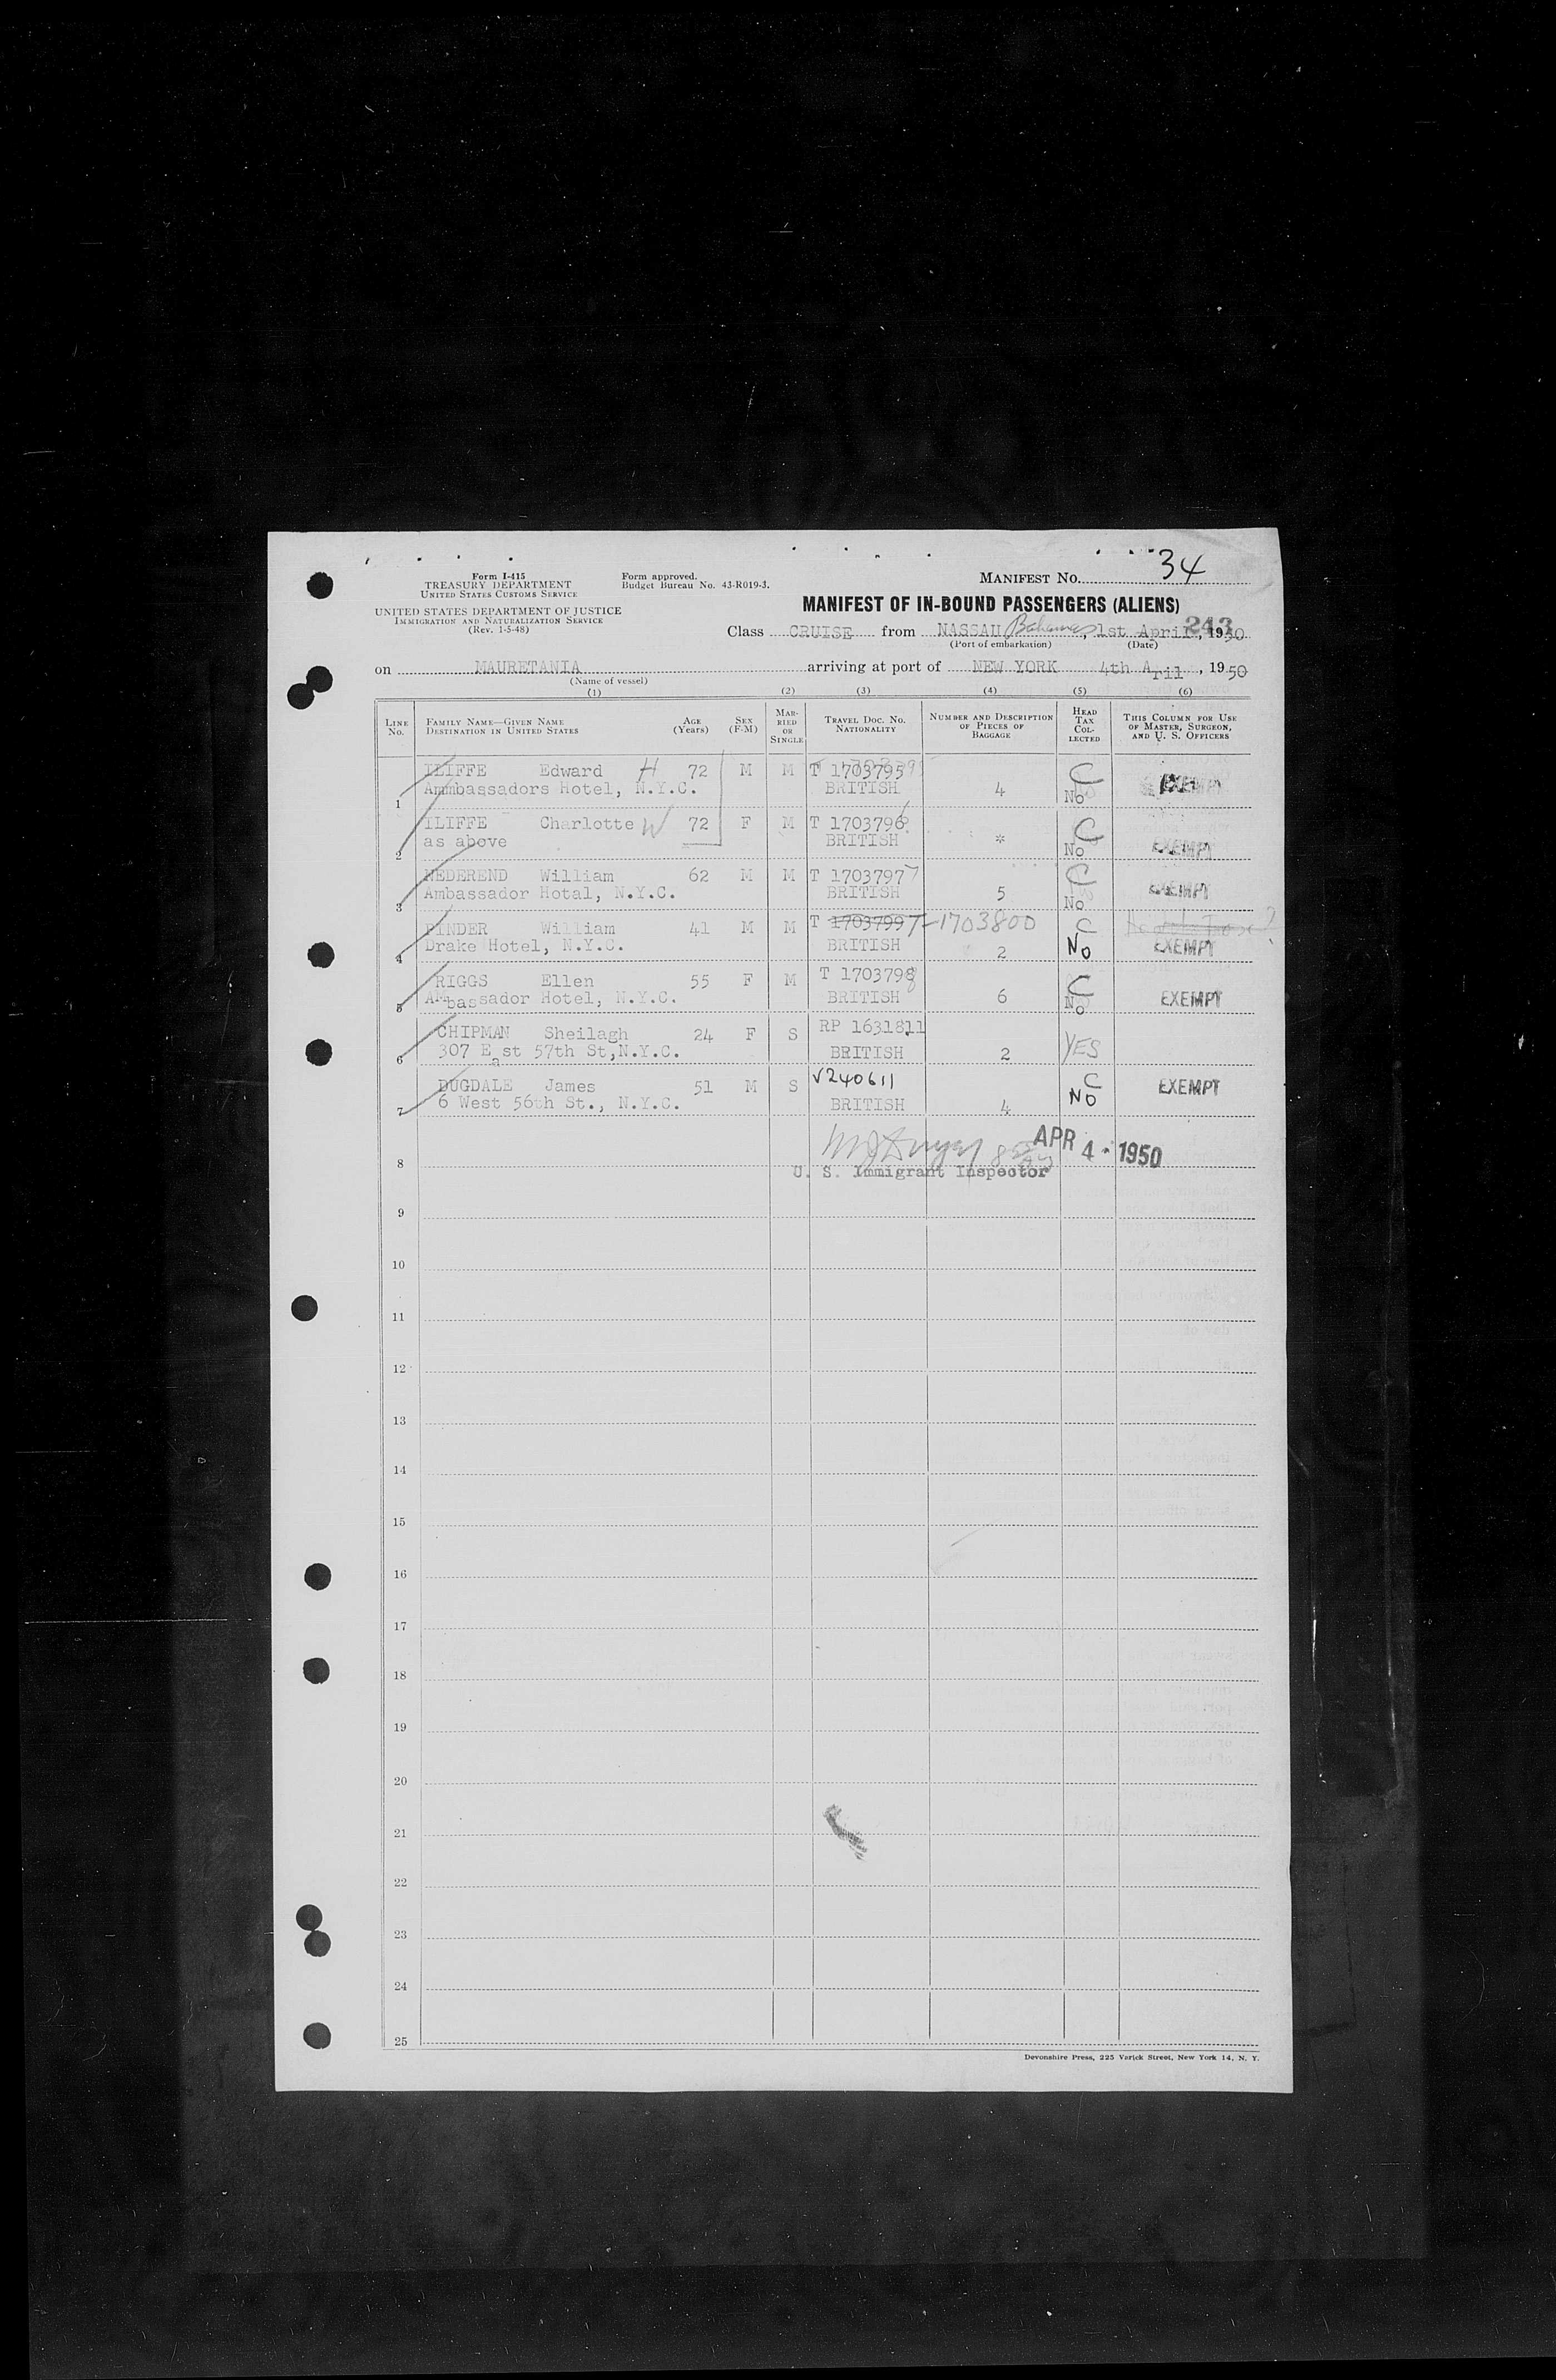 Form I-415
TREASURY DEPARTMENT
UNITED STATES CUSTOMS SERVICE
UNITED STATES DEPARTMENT OF JUSTICE
IMMIGRATION AND NATURALIZATION SERVICE
(Rev. 1-5-48)
Form approved.
Budget Bureau No. 43-R019-3.
MANIFEST No. 34
MANIFEST OF IN-BOUND PASSENGERS (ALIENS)
243
Class CRUISE from NASSAU Bahamas, 1st April, 1950
(Port of embarkation) (Date)
on MAURETANIA arriving at port of NEW YORK 4th April, 1950
(Name of vessel)
(1) (2) (3) (4) (5) (6)
LINE No. FAMILY NAME—GIVEN NAME DESTINATION IN UNITED STATES AGE (Years) SEX (F-M) MARRIED OR SINGLE TRAVEL DOC. NO. NATIONALITY NUMBER AND DESCRIPTION OF PIECES OF BAGGAGE HEAD TAX COLLECTED THIS COLUMN FOR USE OF MASTER, SURGEON, AND U. S. OFFICERS
ILIFFE Edward H 72 M M T 1703795 C
1 Ammbassadors Hotel, N.Y.C. BRITISH 4 No EXEMPT
ILIFFE Charlotte W 72 F M T 1703796 C
2 as above BRITISH * No EXEMPT
NEDEREND William 62 M M T 1703797 C
3 Ambassador Hotal, N.Y.C. BRITISH 5 No EXEMPT
PINDER William 41 M M T 1703799 T-1703800 C
4 Drake Hotel, N.Y.C. BRITISH 2 No EXEMPT
RIGGS Ellen 55 F M T 1703798 C
5 Ambassador Hotel, N.Y.C. BRITISH 6 No EXEMPT
CHIPMAN Sheilagh 24 F S RP 1631811
6 307 East 57th St,N.Y.C. BRITISH 2 YES
DUGDALE James 51 M S V240611 C
7 6 West 56th St., N.Y.C. BRITISH 4 NO EXEMPT
APR 4 - 1950
8 U. S. Immigrant Inspector
9
10
11
12
13
14
15
16
17
18
19
20
21
22
23
24
25
Devonshire Press, 225 Varick Street, New York 14, N. Y.